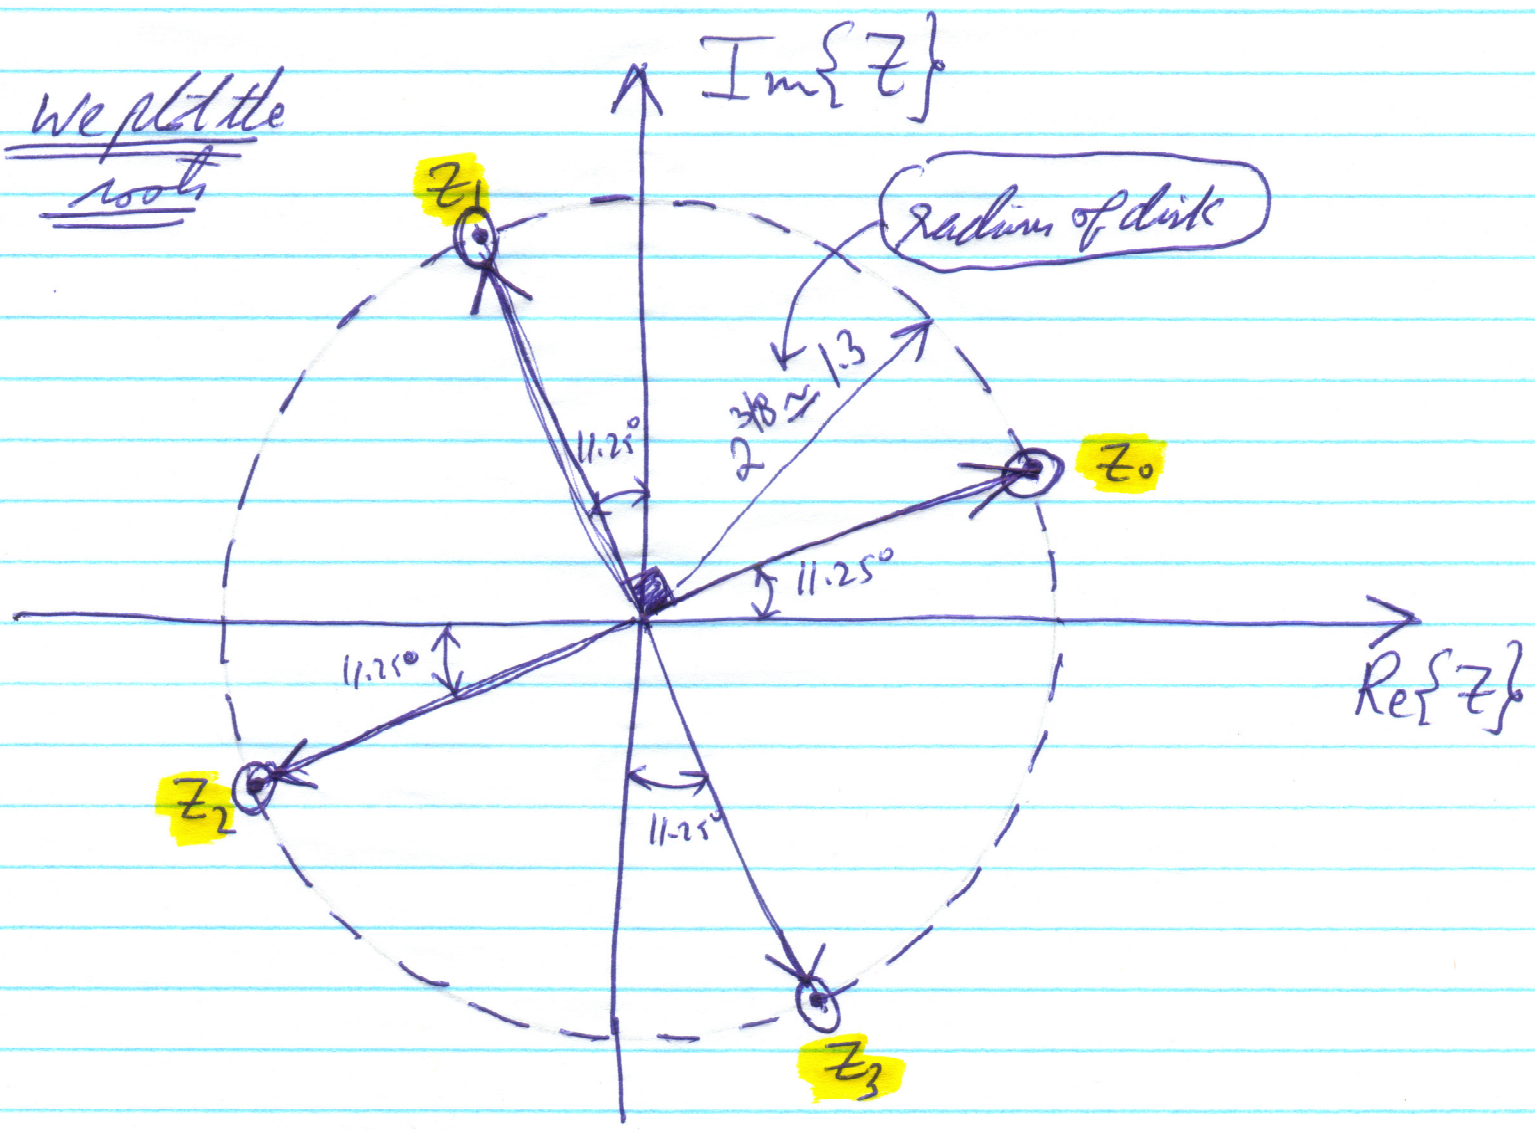 We plot the
roots
Im{Z}
Z1
radius of disk
2^3/8 ≃ 1.3
11.25°
Z0
11.25°
11.25°
Re{Z}
Z2
11.25°
Z3